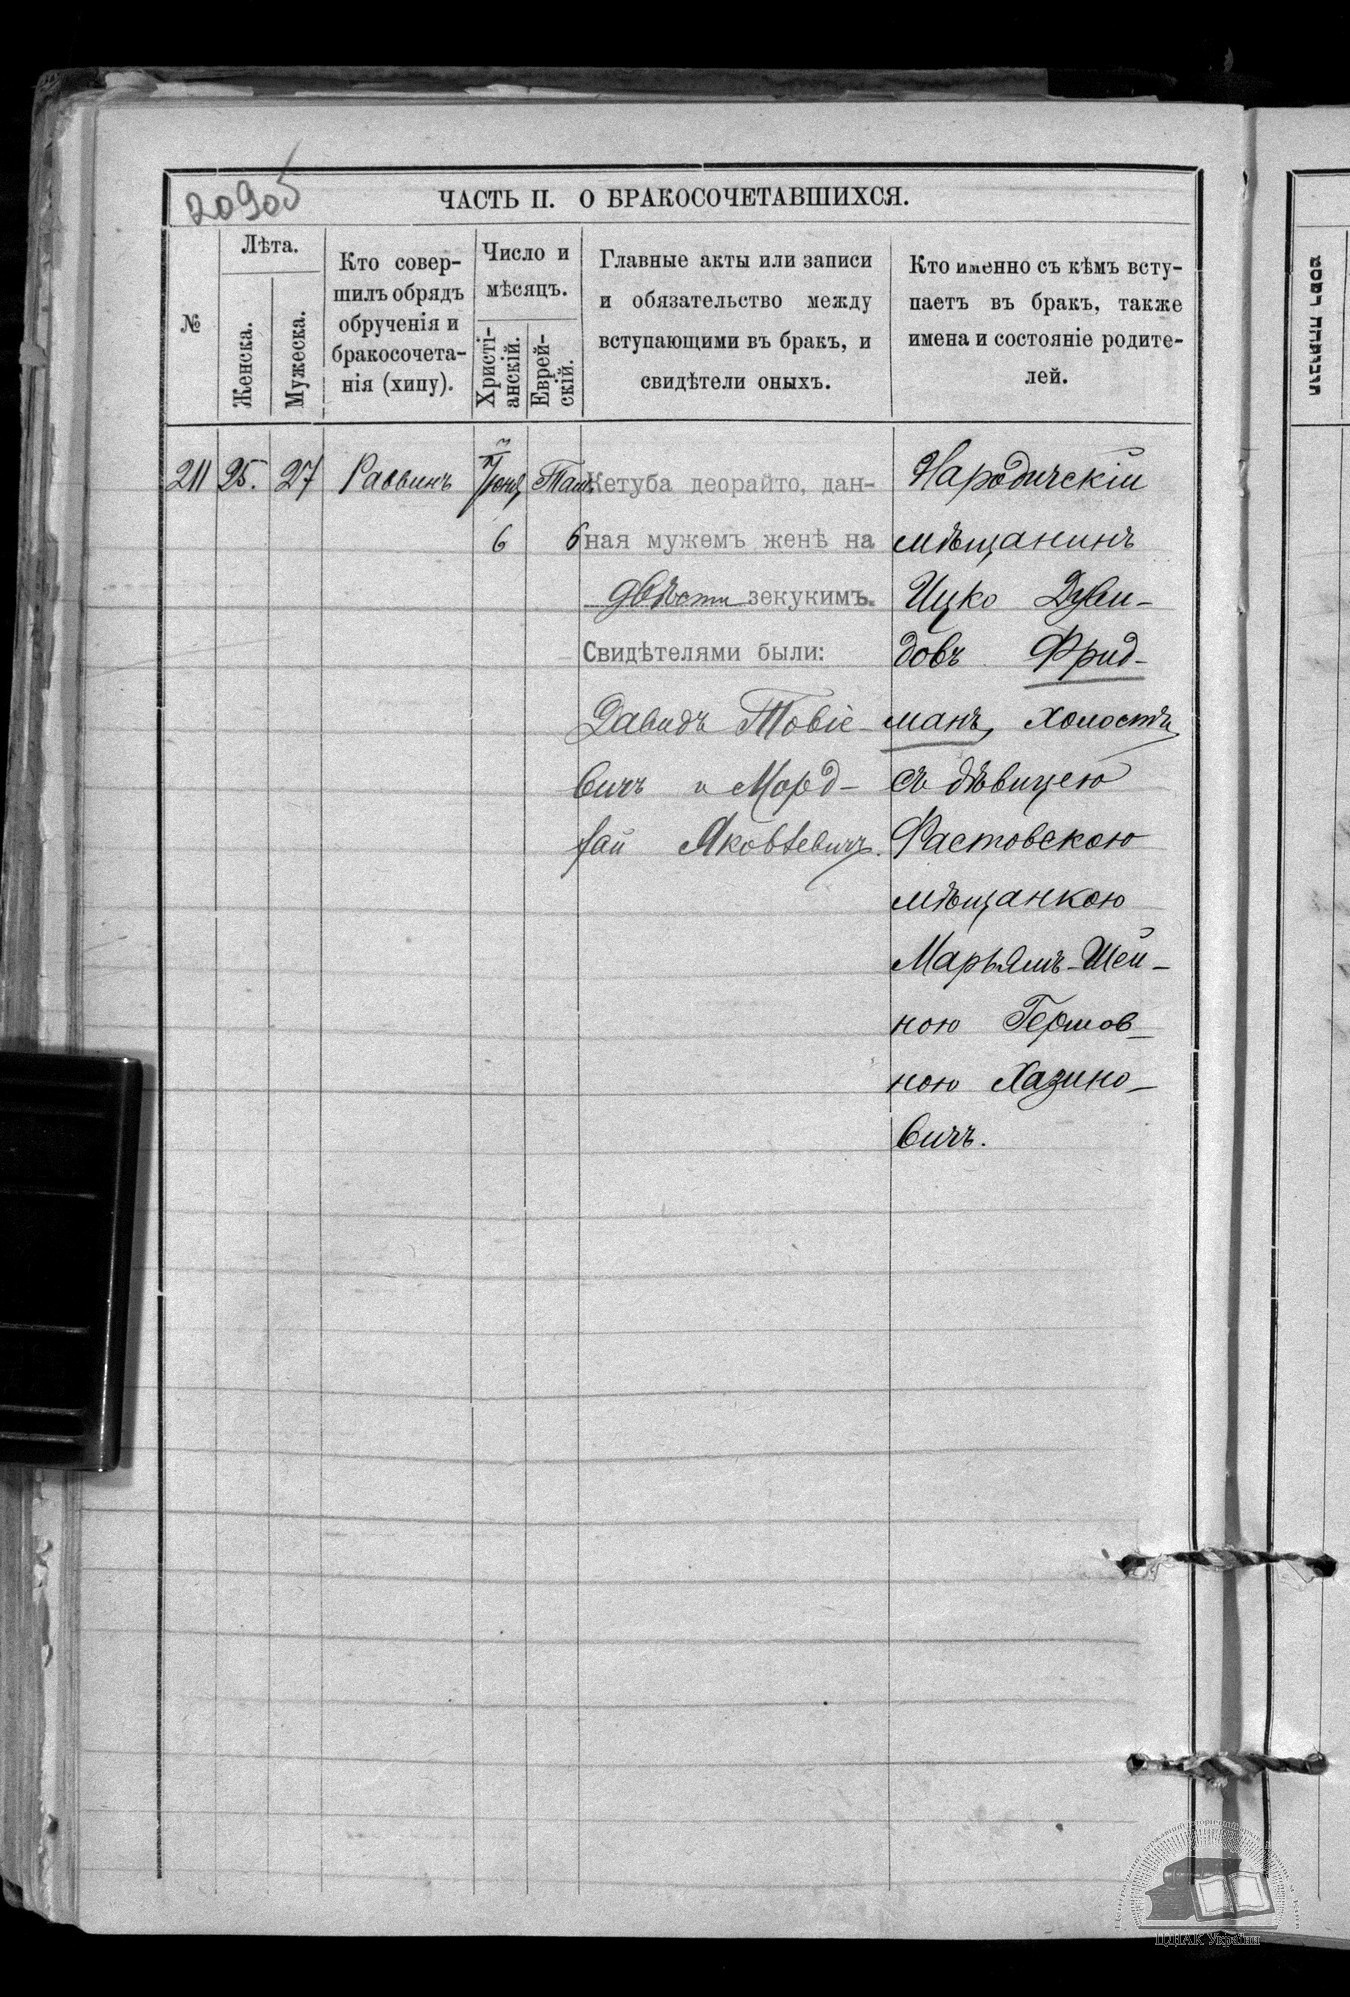 20905
ЧАСТЬ II. О БРАКОСОЧЕТАВШИХСЯ.
№
Лѣта.
Женска.
Мужеска.
Кто совер-
шилъ обрядъ
обрученія и
бракосочета-
нія (хипу).
Число и
мѣсяцъ.
Христі-
анскій.
Еврей-
скій.
Главные акты или записи
и обязательство между
вступающими въ бракъ, и
свидѣтели оныхъ.
Кто именно съ кѣмъ всту-
паетъ въ бракъ, также
имена и состояніе родите-
лей.
211 25. 27 Раввинъ
6 6
Кетуба деорайто, дан-
ная мужемъ женѣ на
двѣсти зекукимъ.
Свидѣтелями были:
Давидъ Товіе-
вичъ и Морд-
хай Яковлевичъ.
Народичскій
мѣщанинъ
Ицко Дуви-
довъ Фрид-
манъ, холостъ,
съ дѣвицею
Фастовскою
мѣщанкою
Марьямъ-Шей-
ною Гершов-
ною Хазино-
вичъ.
ЦДІАК України